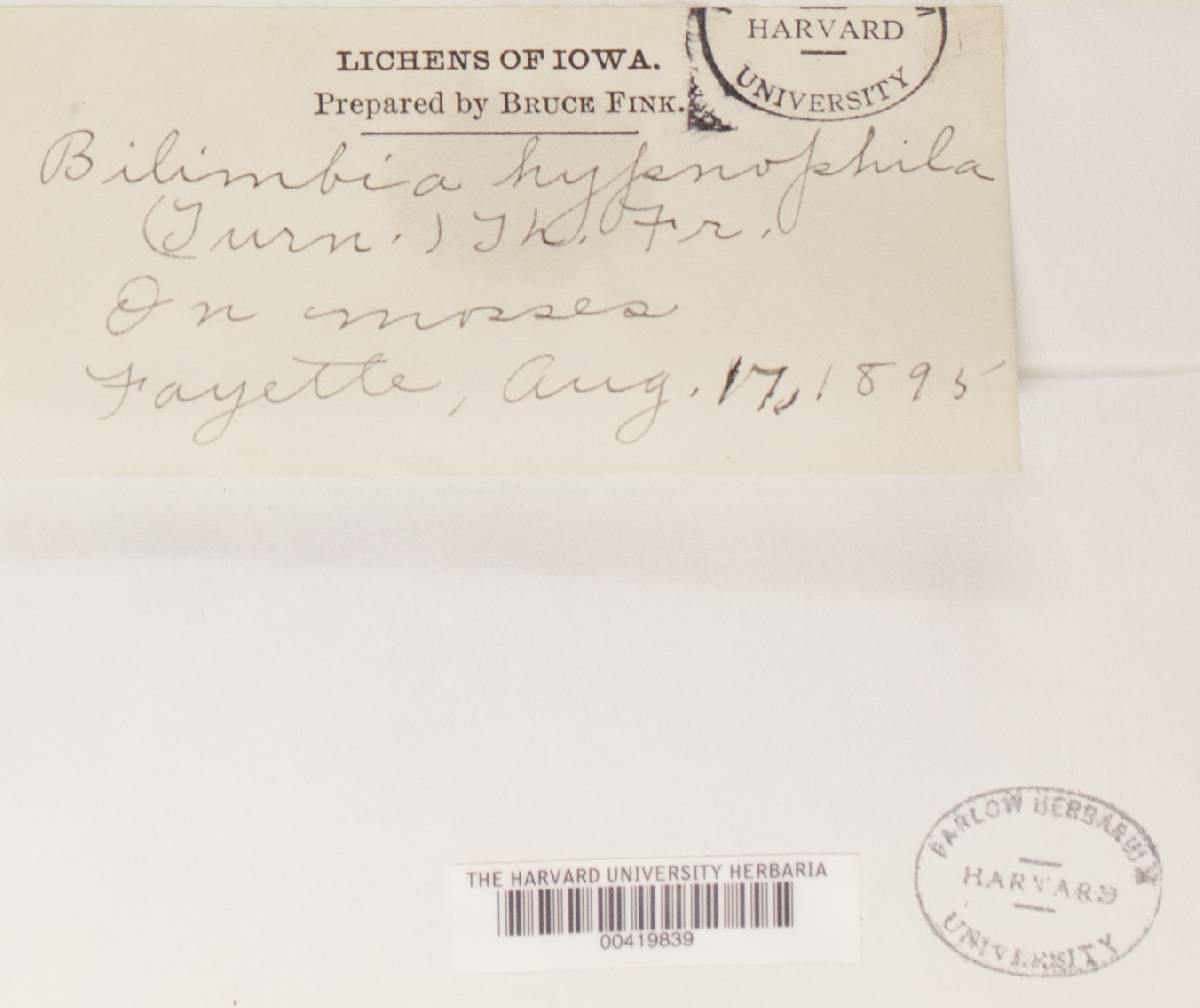 HARVARD
UNIVERSITY
LICHENS OF IOWA.
Prepared by BRUCE FINK.
Bilimbia hypnophila
(Turn.) Th. Fr.
On mosses
Fayette, Aug. 17, 1895
THE HARVARD UNIVERSITY HERBARIA
00419839
FARLOW HERBARIUM
HARVARD
UNIVERSITY